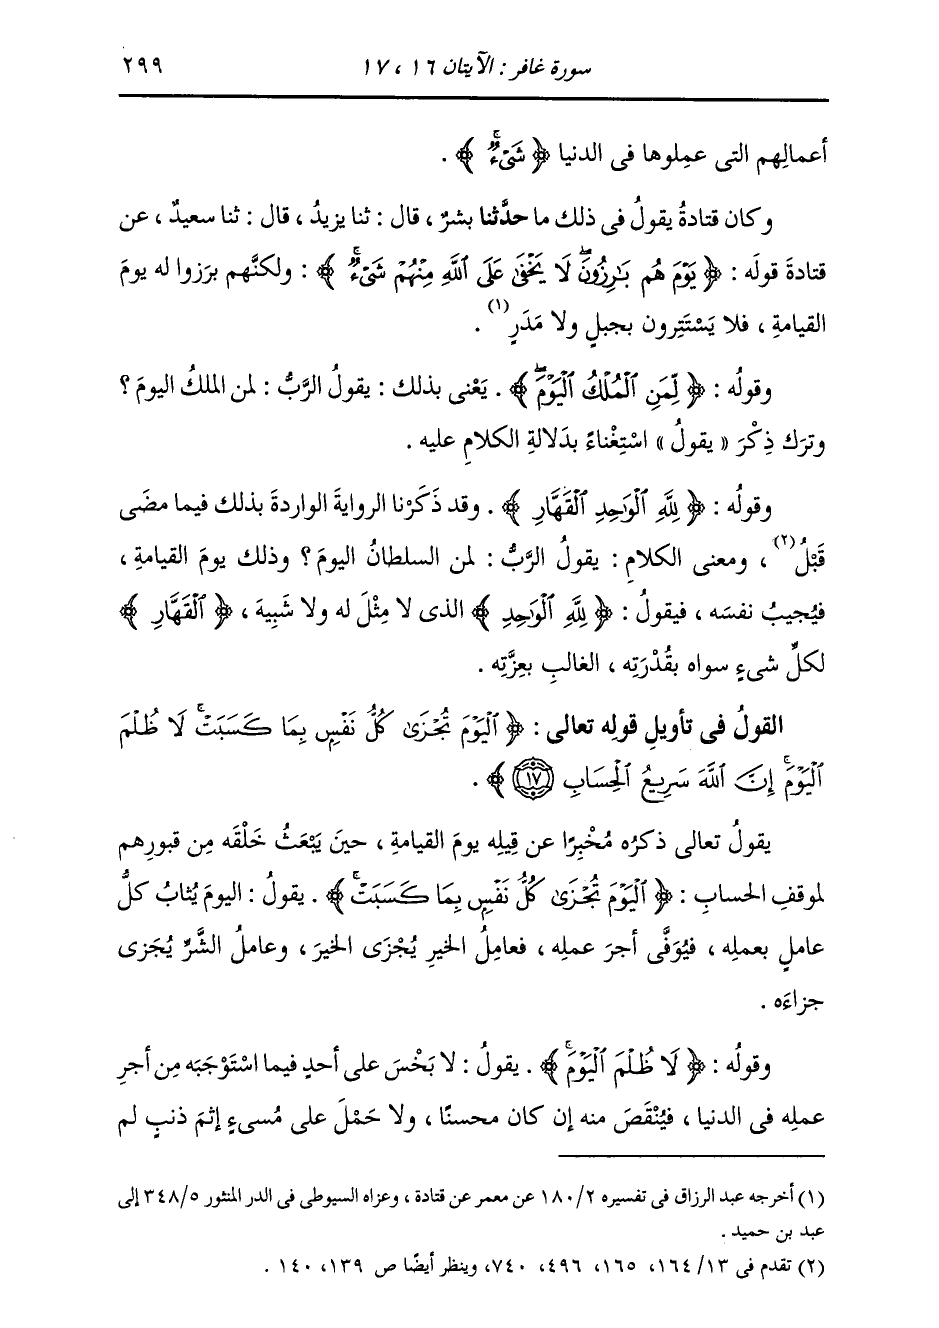 سورة غافر : الآيتان ١٦ ، ١٧ ٢٩٩
أعمالِهم التى عمِلوها فى الدنيا ﴿ شَىْءٌ ﴾ .
وكان قتادةُ يقولُ فى ذلك ما حدَّثنا بشرٌ ، قال : ثنا يزيدُ ، قال : ثنا سعيدٌ ، عن
قتادةَ قولَه : ﴿ يَوْمَ هُم بَٰرِزُونَۖ لَا يَخْفَىٰ عَلَى ٱللَّهِ مِنْهُمْ شَىْءٌۚ ﴾ : ولكنَّهم برَزوا له يومَ
القيامةِ ، فلا يَسْتَتِرون بجبلٍ ولا مَدَرٍ(١) .
وقولُه : ﴿ لِّمَنِ ٱلْمُلْكُ ٱلْيَوْمَۖ ﴾ . يَعْنى بذلك : يقولُ الرَّبُّ : لمن الملكُ اليومَ ؟
وترَك ذِكْرَ « يقولُ » اسْتِغْناءً بدَلالةِ الكلامِ عليه .
وقولُه : ﴿ لِلَّهِ ٱلْوَٰحِدِ ٱلْقَهَّارِ ﴾ . وقد ذَكَرْنا الروايةَ الواردةَ بذلك فيما مضَى
قَبْلُ(٢) ، ومعنى الكلامِ : يقولُ الرَّبُّ : لمن السلطانُ اليومَ ؟ وذلك يومَ القيامةِ ،
فيُجيبُ نفسَه ، فيقولُ : ﴿ لِلَّهِ ٱلْوَٰحِدِ ﴾ الذى لا مِثْلَ له ولا شَبِيهَ ، ﴿ ٱلْقَهَّارِ ﴾
لكلِّ شىءٍ سواه بقُدْرَتِه ، الغالبِ بعِزَّتِه .
القولُ فى تأويلِ قولِه تعالى : ﴿ ٱلْيَوْمَ تُجْزَىٰ كُلُّ نَفْسٍۭ بِمَا كَسَبَتْۚ لَا ظُلْمَ
ٱلْيَوْمَۚ إِنَّ ٱللَّهَ سَرِيعُ ٱلْحِسَابِ ١٧ ﴾ .
يقولُ تعالى ذكرُه مُخْبِرًا عن قِيلِه يومَ القيامةِ ، حينَ يَبْعَثُ خَلْقَه مِن قبورِهم
لموقفِ الحسابِ : ﴿ ٱلْيَوْمَ تُجْزَىٰ كُلُّ نَفْسٍۭ بِمَا كَسَبَتْۚ ﴾ . يقولُ : اليومَ يُثابُ كلُّ
عاملٍ بعملِه ، فيُوَفَّى أجرَ عملِه ، فعاملُ الخيرِ يُجْزَى الخيرَ ، وعاملُ الشَّرِّ يُجْزى
جزاءَه .
وقولُه : ﴿ لَا ظُلْمَ ٱلْيَوْمَۚ ﴾ . يقولُ : لا بَخْسَ على أحدٍ فيما اسْتَوْجَبَه مِن أجرِ
عملِه فى الدنيا ، فيُنْقَصَ منه إن كان محسنًا ، ولا حَمْلَ على مُسىءٍ إثمَ ذنبٍ لم
(١) أخرجه عبد الرزاق فى تفسيره ١٨٠/٢ عن معمر عن قتادة ، وعزاه السيوطى فى الدر المنثور ٣٤٨/٥ إلى
عبد بن حميد .
(٢) تقدم فى ١٣/ ١٦٤، ١٦٥، ٤٩٦، ٧٤٠، وينظر أيضًا ص ١٣٩، ١٤٠ .